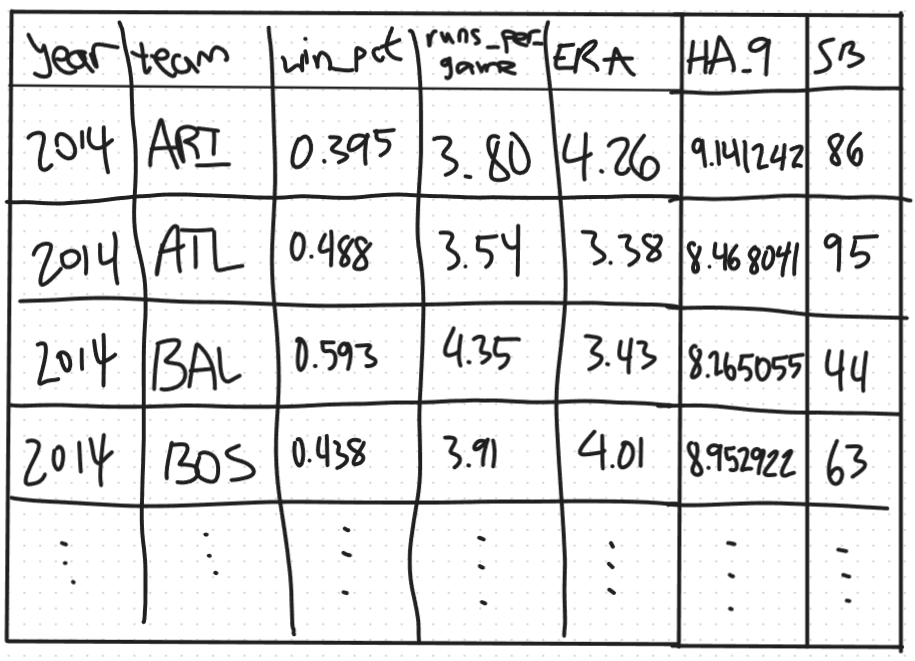 year team win_pct runs_per_game ERA HA_9 SB
2014 ARI 0.395 3.80 4.26 9.141242 86
2014 ATL 0.488 3.54 3.38 8.468041 95
2014 BAL 0.593 4.35 3.43 8.265055 44
2014 BOS 0.438 3.91 4.01 8.952922 63